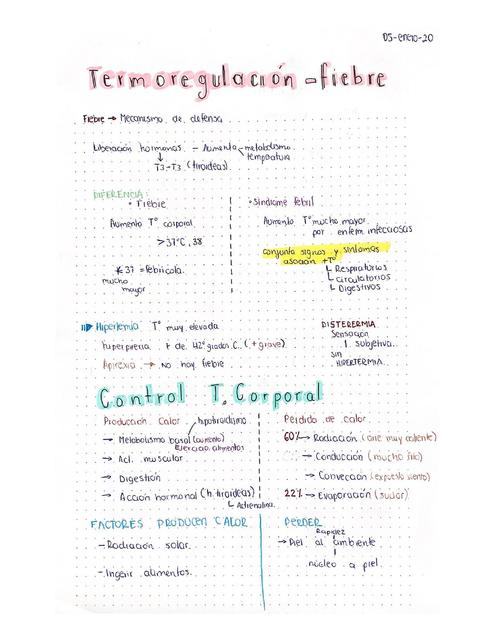 05-enero-20
Termoregulación - fiebre
Fiebre → Mecanismo de defensa
Liberación hormonas - Aumenta metabolismo
temperatura
↓
T3-T3 (tiroideas)
DIFERENCIA:
• Fiebre
Aumento T° corporal
>37°C, 38
37 = febrícula.
mucho
mayor
• Síndrome febril
Aumento T° mucho mayor
por enferm infecciosas
conjunto signos y síntomas
asocian +T°
Respiratorios
circulatorios
Digestivos
Hipertemia T° muy elevada
hiperpirexia + de 42° grados C. (+ grave)
Apirexia → No hay fiebre
DISTERERMIA
Sensación
1. subjetiva.
sin
HIPERTERMIA.
Control T. Corporal
Producción Calor
hipotiroidismo
→ Metabolismo basal (aumento)
Ejercicio, alimentos
→ Act. muscular
→ Digestión
→ Acción hormonal (h. tiroideas)
Adrenalina.
Perdida de calor
60% → Radiación (aire muy caliente)
→ Conducción (mucho frio)
→ Convección (expuesto viento)
22% → Evaporación (sudar)
FACTORES PRODUCEN CALOR
- Radiación solar.
- Ingerir alimentos.
PERDER
Rapidez
→ Piel al ambiente
núcleo a piel.